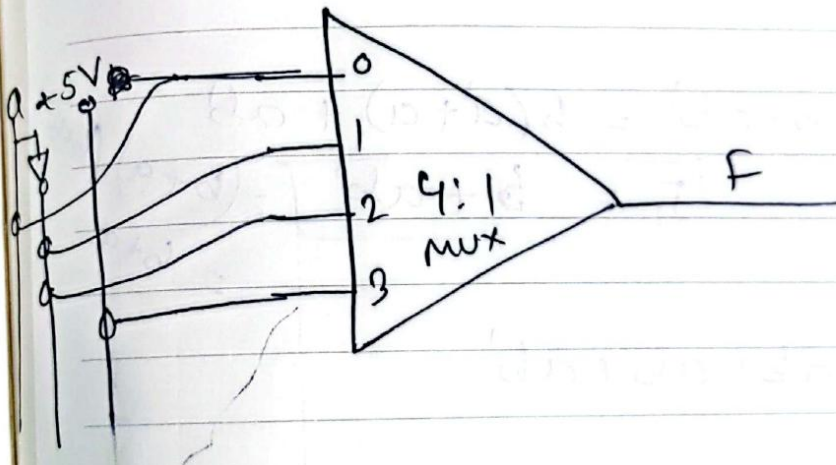 a +5V
0
1
2
3
4:1
MUX
F